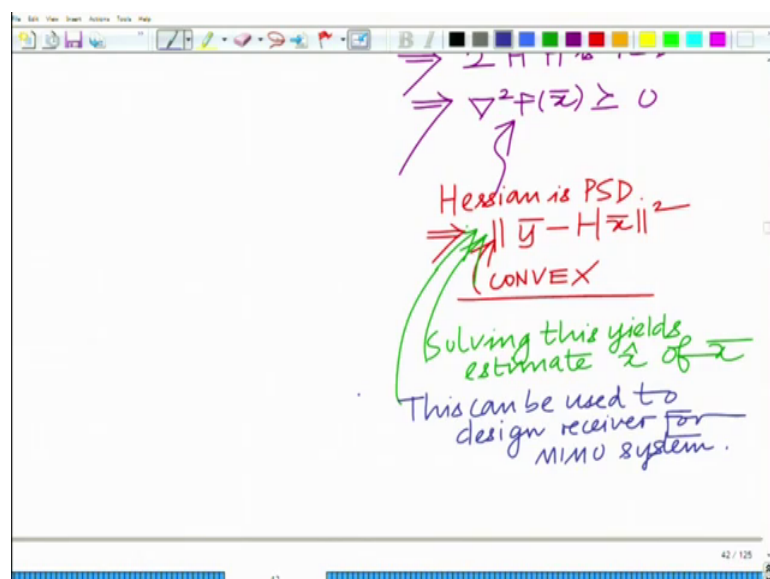 File Edit View Insert Actions Tools Help
B I
⇒ 2 H H
⇒ ∇²F(x̄) ≥ 0
Hessian is PSD.
⇒ || ȳ − Hx̄ ||²
CONVEX
Solving this yields
estimate x̂ of x̄
This can be used to
design receiver for
MIMO system.
42 / 125